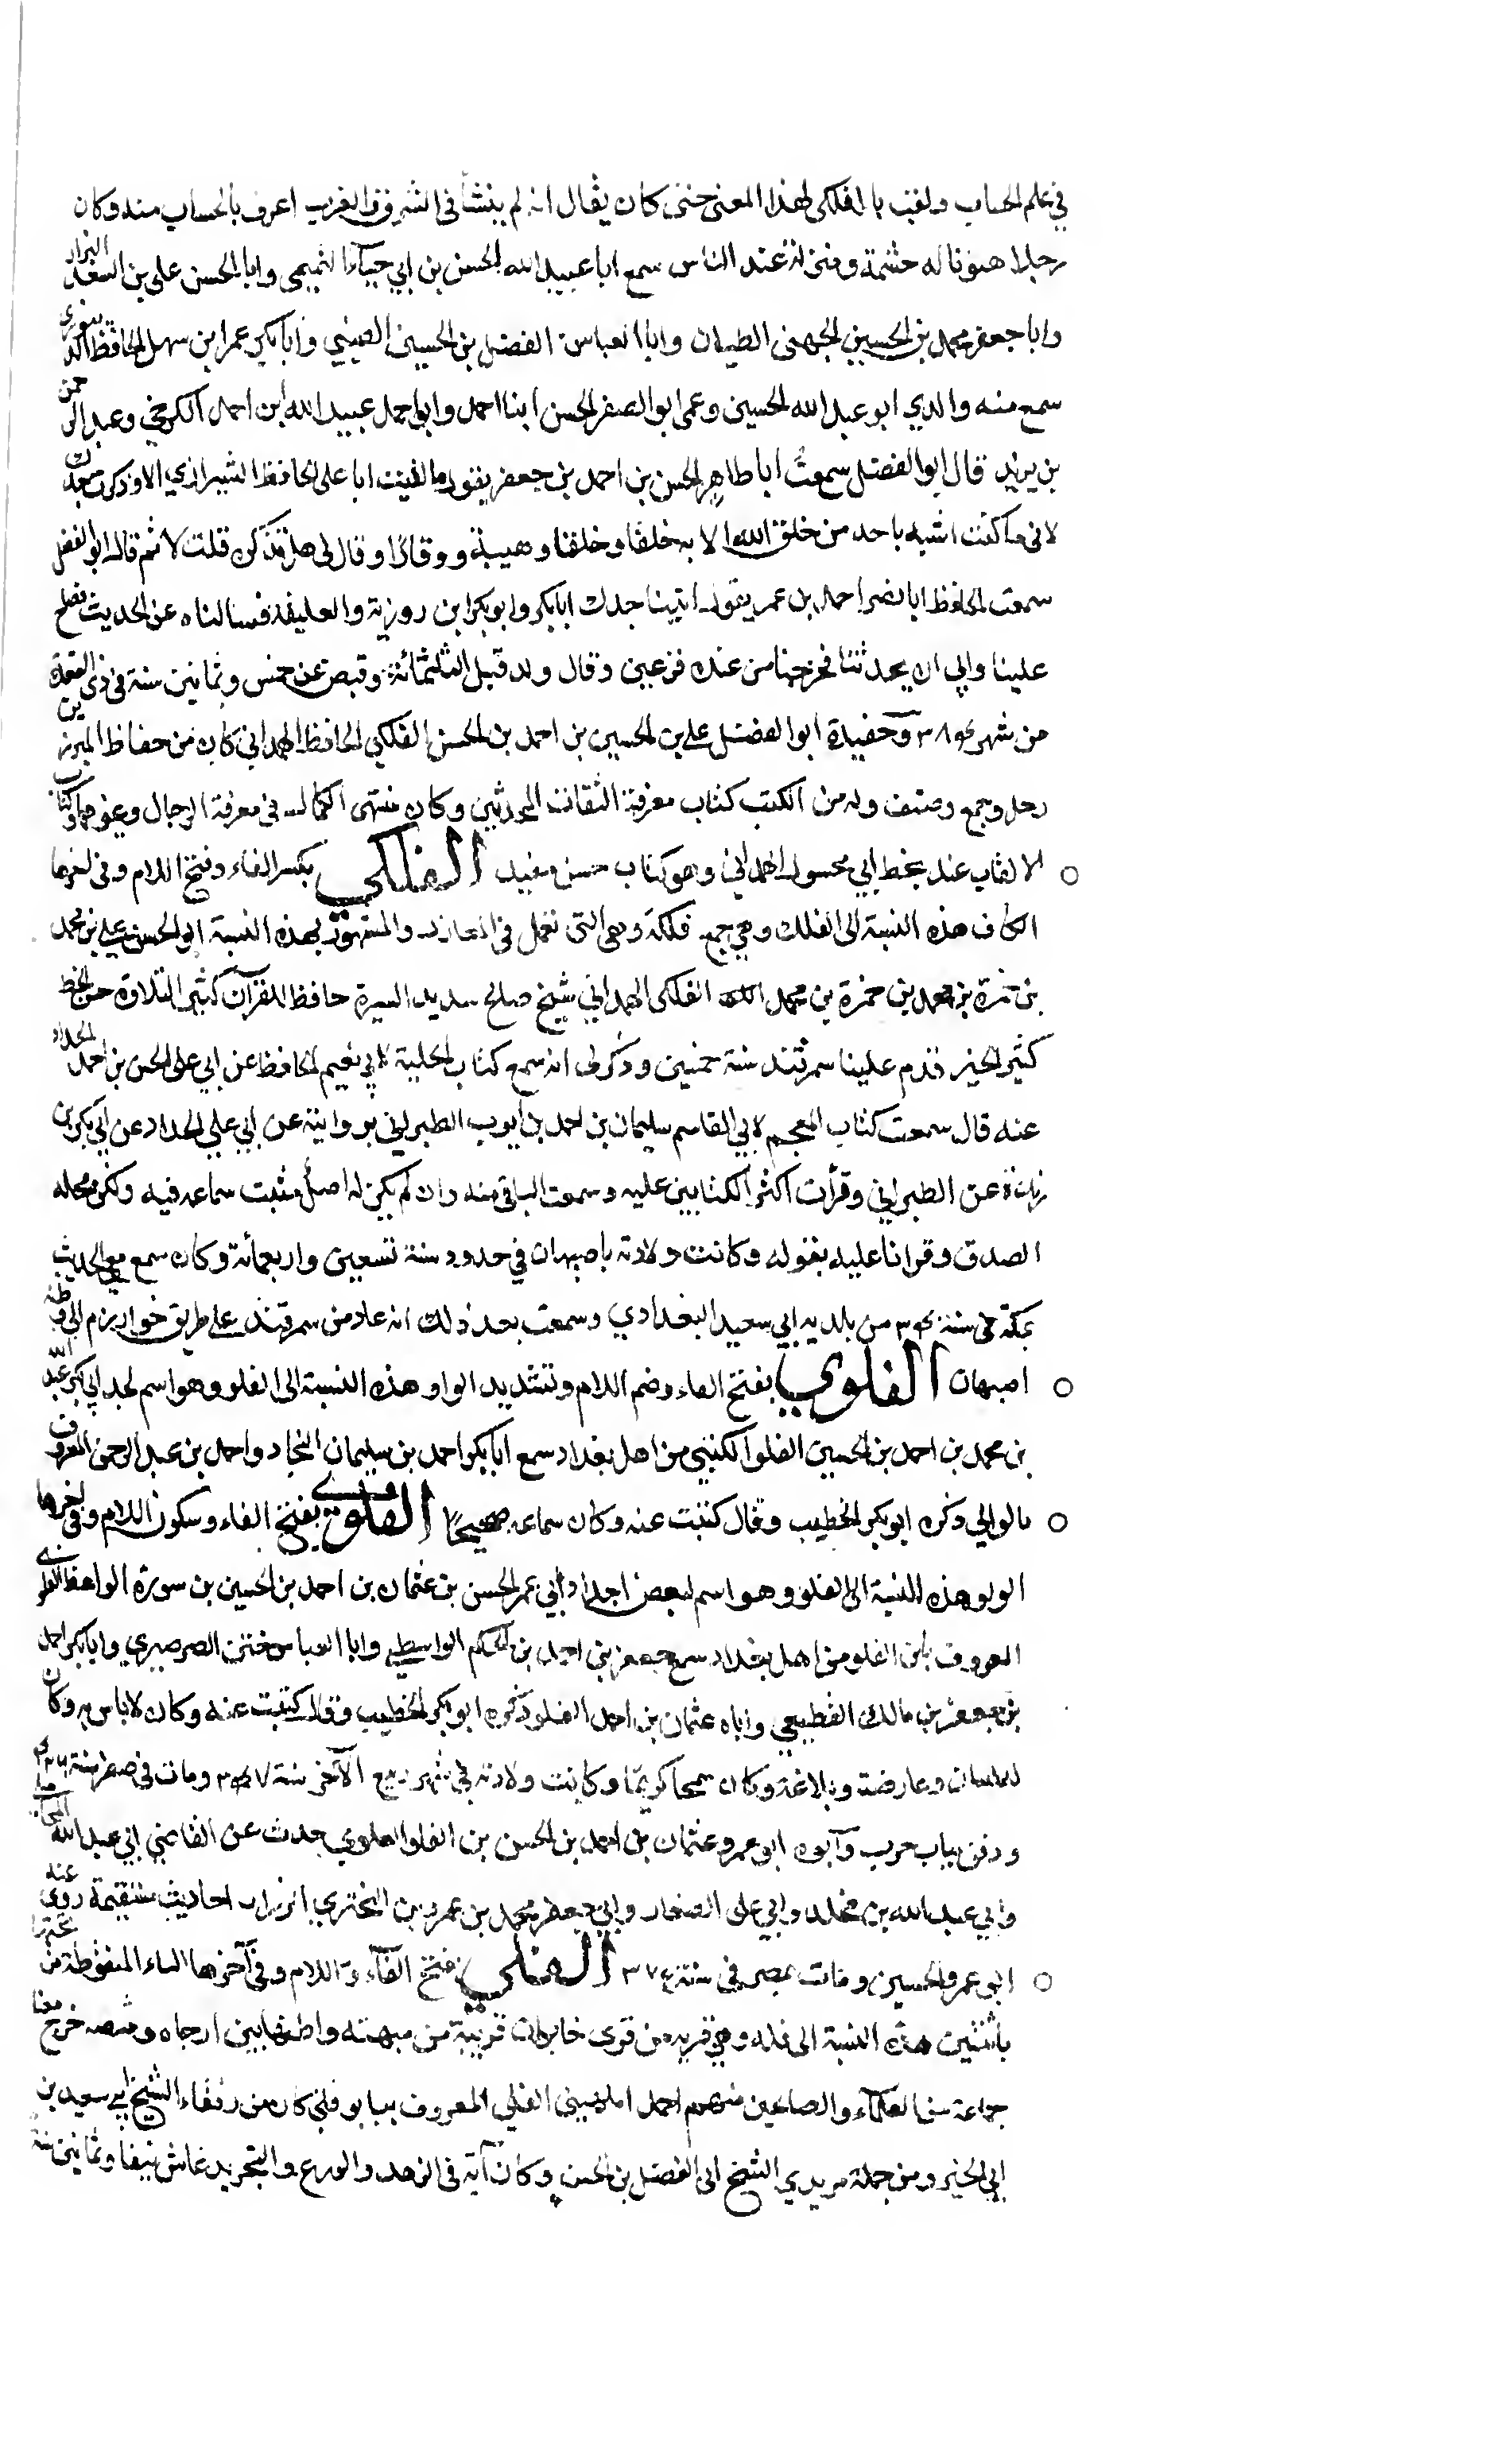 في علم الحساب ولقب بالفلكي لهذا المعنى حتى كان يقال انه لم ينشأ في الشرق والغرب اعرف بالحساب منه وكان
رجلا هيوبا له حشمة ومنزلة عند الناس سمع ابا عبيد الله الحسن بن ابي التميمي وابا الحسن علي بن السعد البزار
وابا جعفر محمد بن الحسين الجهني الطيان وابا العباس الفضل بن الحسين وابا بكر عمر ابن سهل الحافظ الدينوري
سمع منه والدي ابو عبد الله الحسين وعمي ابو الصقر الحسن ابنا احمد وابو احمد عبيد الله ابن احمد الكرجي وعبد الرحمن
بن يزيد قال ابو الفضل سمعت ابا طاهر الحسن بن احمد بن جعفر يقول ما لقيت ابا علي الحافظ الشيرازي الا وذكرت جدك
لاني ما كنت اشبه باحد من خلق الله الا به خلقا وخلقا وهيبة ووقارا وقال لي هل تذكره قلت لا ثم قال ابو الفضل
سمعت الحافظ ابا نصر احمد بن عمر يقول اتينا جدك ابا بكر وابو بكر ابن روزنة والعليقة فسالناه عن الحديث
علينا وابي ان يحدثنا فخرجنا من عنده فزعين وقال ولد قبل الثلثمائة وقبض عن خمس وثمانين سنة في ذي القعدة
من شهر وحفيده ابو الفضل علي بن الحسين بن احمد بن الحسن الفلكي الحافظ الهمداني كان من حفاظ المبرزين
رحل وجمع وصنف وله من الكتب كتاب معرفة الثقات المحدثين وكان منتهى الكمال في معرفة الرجال وكتاب
الالقاب عند بخط ابي محسول الهمداني وهو كتاب حسن مفيد الفلكي بكسر الفاء وفتح اللام وفي اخرها
الكاف هذه النسبة الى الفلك وهي جمع فلكة وهي التي تعمل في المغازل والمشهور بهذه النسبة ابو الحسن علي بن محمد
بن حمزة بن محمد بن حمزة بن محمد الفلكي الهمداني شيخ صالح سديد السيرة حافظ للقرآن كثير التلاوة حسن الخط
كثير الخير قدم علينا سمرقند سنة خمسين وذكر لي انه سمع كتاب الحلية لابي نعيم الحافظ عن ابي علي الحسن بن احمد الحداد
عنه قال سمعت كتاب المعجم لابي القاسم سليمان بن احمد بن ايوب الطبراني بروايته عن ابي علي الحداد عن ابي بكر بن
ريذة عن الطبراني وقرأت اكثر الكتابين عليه وسمعت الباقي منه وان لم يكن له اصل مثبت سماعه فيه ولكن محله
الصدق وقرانا عليه بقوله وكانت ولادته باصبهان في حدود سنة تسعين واربعمائة وكان سمع معي الحديث
بمكة في سنة من بلديه ابي سعيد البغدادي وسمعت بعد ذلك انه عاد من سمرقند على طريق خوارزم الى وطنه
اصبهان الفلوي بفتح الفاء وضم اللام وتشديد الواو هذه النسبة الى الفلو وهو اسم لجد ابي بكر عبد الله
بن محمد بن احمد بن الحسين الفلو الكتبي من اهل بغداد سمع ابا بكر احمد بن سليمان النجاد واحمد بن عبد الرحمن المعروف
بالوالي ذكره ابو بكر الخطيب وقال كتبت عنه وكان سماعه صحيحا الفلوي بفتح الفاء وسكون اللام وفي اخرها
الواو هذه النسبة الى الفلو وهو اسم لبعض اجداد ابي عمر الحسن بن عثمان بن احمد بن الحسين بن سورة الواعظ الفلوي
المعروف بابن الفلو من اهل بغداد سمع جعفر بن احمد بن الحكم الواسطي وابا العباس ختن الصرصري وابا بكر احمد
بن جعفر بن مالك القطيعي واباه عثمان بن احمد الفلو ذكره ابو بكر الخطيب وقال كتبت عنه وكان لا باس به وكان
له لسان وعارضة وبلاغة وكان سمحا كريما وكانت ولادته في شهر ربيع الآخر سنة ومات في صفر سنة
ودفن بباب حرب وابوه ابو عمرو عثمان بن احمد بن الحسن بن الفلو الفلوي حدث عن القاضي ابي عبد الله المحاملي
وابي عبد الله بن مخلد وابي علي الصفار وابي جعفر محمد بن عمرو بن البختري الرزاز احاديث مستقيمة روى عنه
ابو عمر والحسين ومات بمصر في سنة الفلي بفتح الفاء واللام وفي آخرها الياء المنقوطة من تحتها
باثنتين هذه النسبة الى فله وهي قرية من قرى خابران قريبة من ميهنه واظنها بين ازجاه وميهنه خرج منها
جماعة من العلماء والصالحين منهم احمد الميهني الفلي المعروف ببابو فلي كان من رفقاء الشيخ ابي سعيد بن
ابي الخير ومن جملة مريدي الشيخ ابي الفضل بن الحسن وكان آية في الزهد والورع والتجريد عاش نيفا وثمانين سنة